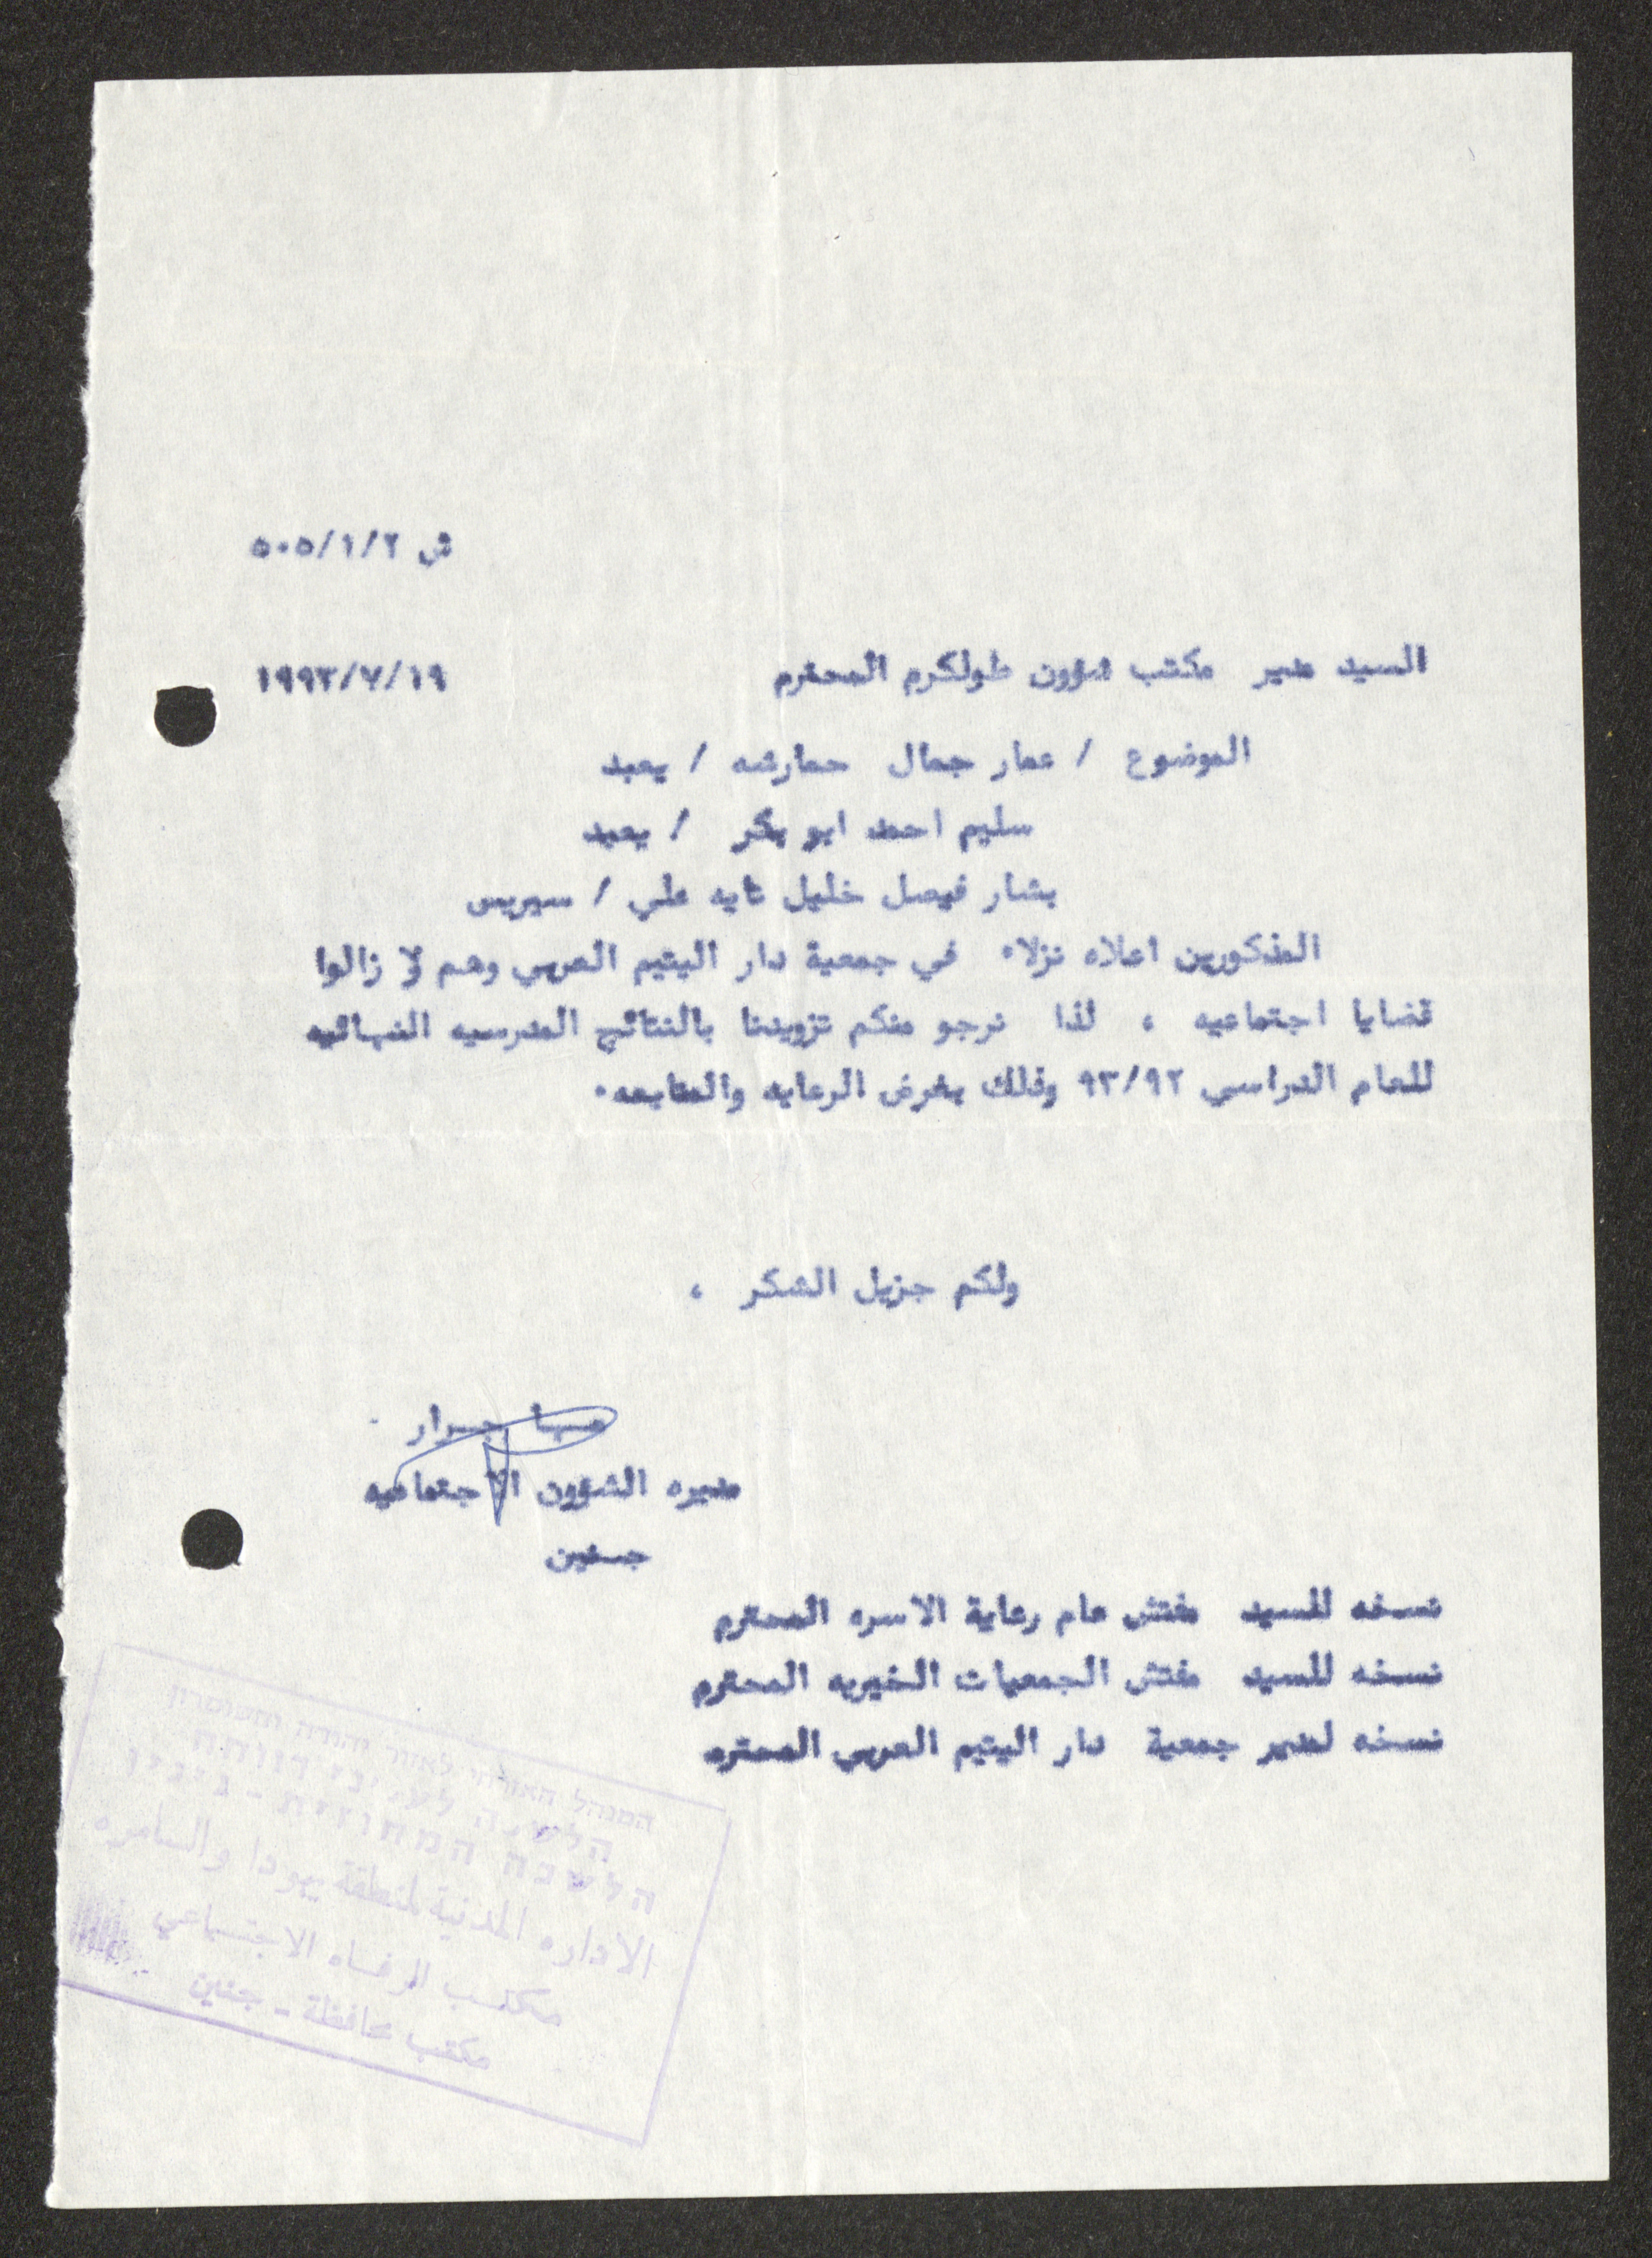 ش ٥٠٥/١/٢
السيد مدير مكتب شؤون طولكرم المحترم ١٩٩٣/٧/١٩
الموضوع / عمار جمال حمارشه / يعبد
سليم احمد ابو بكر / يعبد
بشار فيصل خليل تايه علي / سيريس
المذكورين اعلاه نزلاء في جمعية دار اليتيم العربي وهم لا زالوا
قضايا اجتماعيه ، لذا نرجو منكم تزويدنا بالنتائج المدرسيه النهائيه
للعام الدراسي ٩٣/٩٢ وذلك بغرض الرعايه والمتابعه٠
ولكم جزيل الشكر ،
مها جرار
مديره الشؤون الاجتماعيه
جنين
نسخه للسيد مفتش عام رعاية الاسره المحترم
نسخه للسيد مفتش الجمعيات الخيريه المحترم
نسخه لمدير جمعية دار اليتيم العربي المحترم
המנהל האזרחי לאזור יהודה והשומרון
הלשכה המחוזית - ג'נין
الاداره المدنية لمنطقة يهودا والسامره
مكتب الرفاه الاجتماعي
مكتب محافظة - جنين